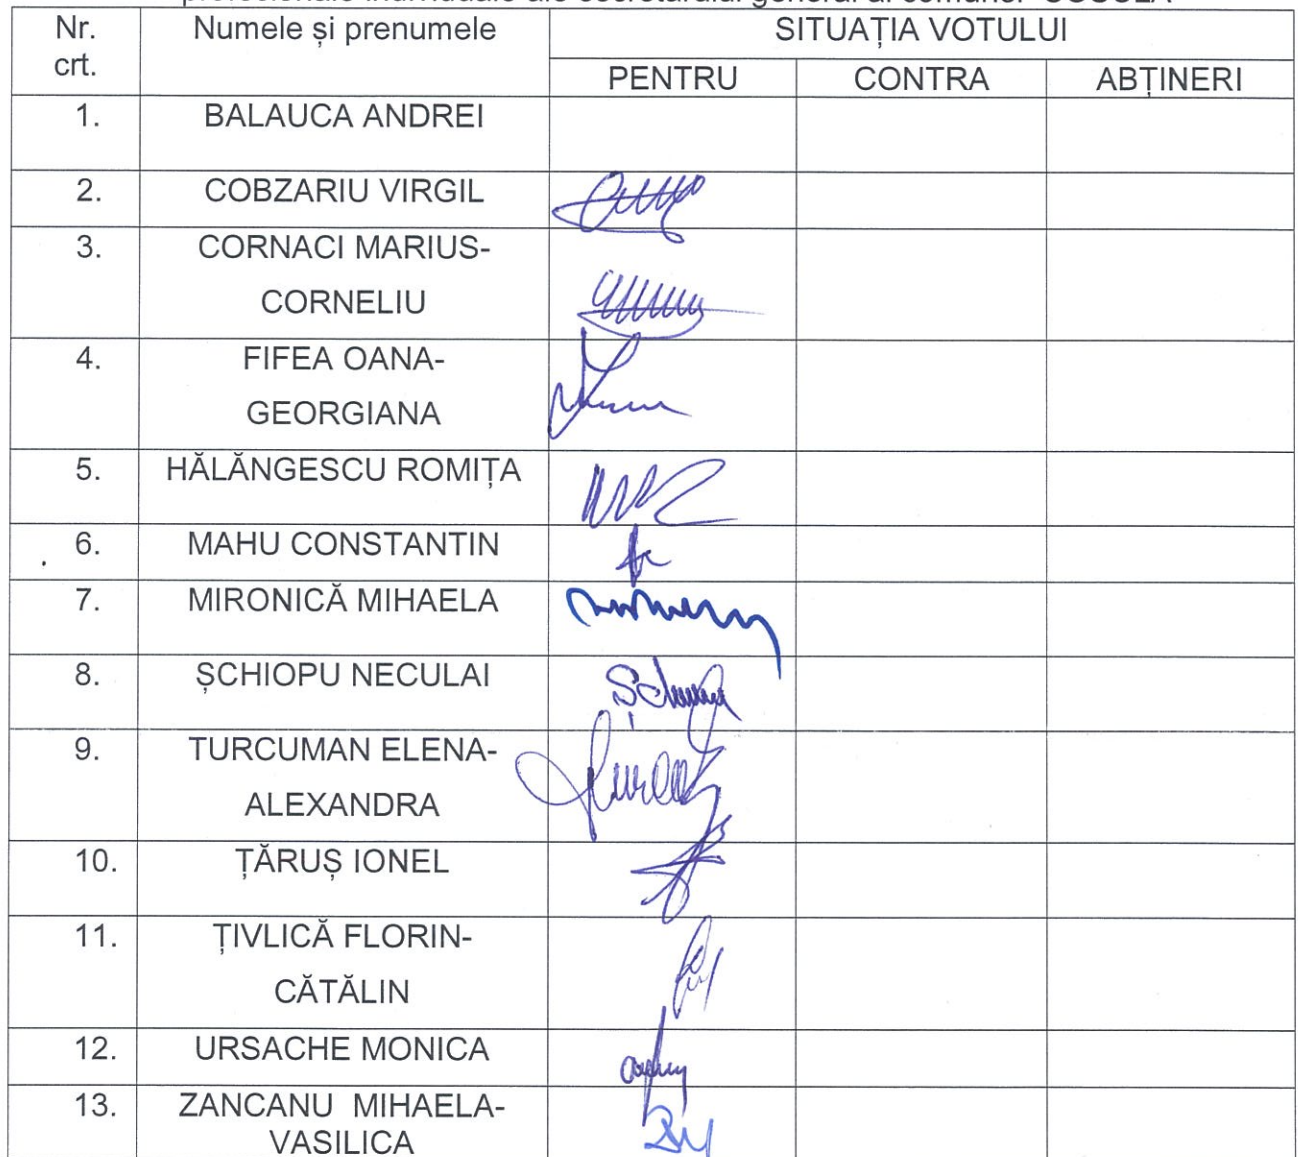 profesionale individuale ale secretarului general al comunei COȘULA
Nr. crt. Numele și prenumele SITUAȚIA VOTULUI
PENTRU CONTRA ABȚINERI
1. BALAUCA ANDREI
2. COBZARIU VIRGIL
3. CORNACI MARIUS-
CORNELIU
4. FIFEA OANA-
GEORGIANA
5. HĂLĂNGESCU ROMIȚA
6. MAHU CONSTANTIN
7. MIRONICĂ MIHAELA
8. ȘCHIOPU NECULAI
9. TURCUMAN ELENA-
ALEXANDRA
10. ȚĂRUȘ IONEL
11. ȚIVLICĂ FLORIN-
CĂTĂLIN
12. URSACHE MONICA
13. ZANCANU MIHAELA-
VASILICA